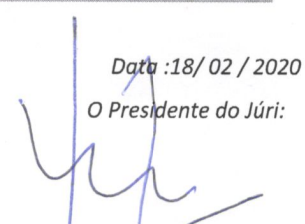 Data :18/ 02 / 2020
O Presidente do Júri: